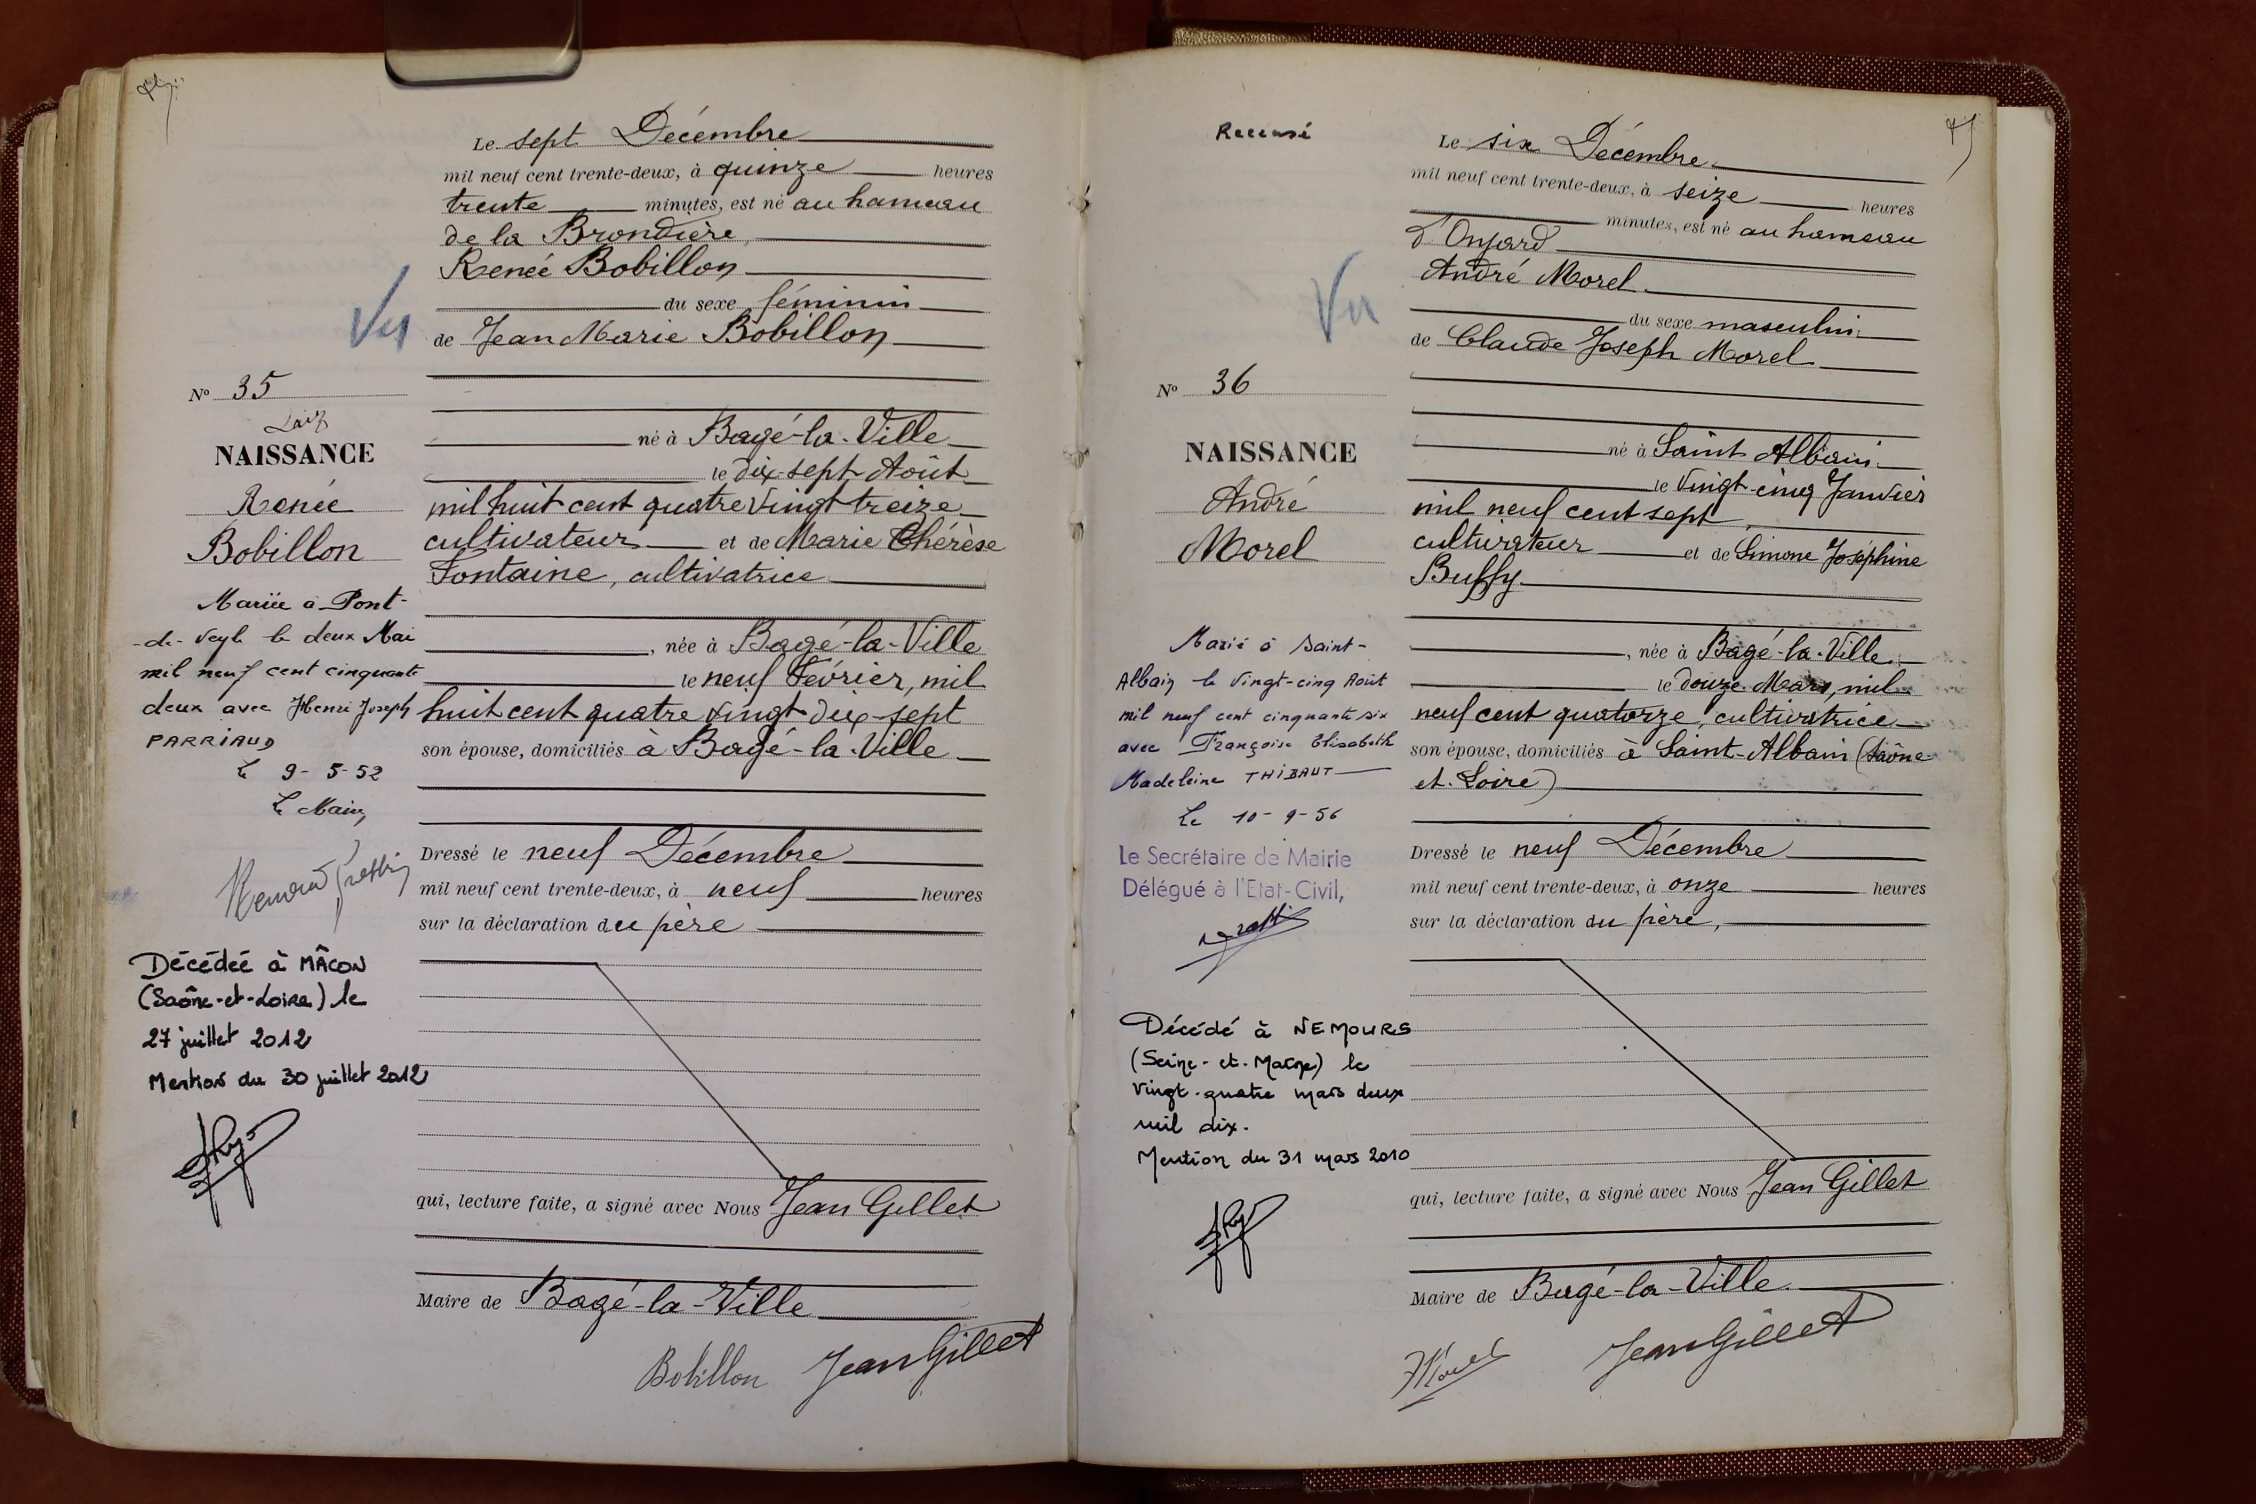 Le sept Décembre
mil neuf cent trente-deux, à quinze heures
trente minutes, est né au hameau
de la Brondière,
Renée Bobillon
du sexe féminin
de Jean Marie Bobillon
né à Bagé-la-Ville
le dix-sept Août
mil huit cent quatre vingt treize
cultivateur et de Marie Thérèse
Fontaine, cultivatrice
, née à Bagé-la-Ville
le neuf Février, mil
huit cent quatre vingt dix-sept
son épouse, domiciliés à Bagé-la-Ville
Dressé le neuf Décembre
mil neuf cent trente-deux, à neuf heures
sur la déclaration du père
qui, lecture faite, a signé avec Nous Jean Gillet
Maire de Bagé-la-Ville
Bobillon Jean Gillet
Vu
N° 35
NAISSANCE
Renée
Bobillon
Mariée à Pont-
-de-Veyle le deux Mai
mil neuf cent cinquante
deux avec Henri Joseph
PARRIAUD
Le 9-5-52
Le Maire,
Décédée à MÂCON
(Saône-et-Loire) le
27 juillet 2012
Mention du 30 juillet 2012
Recensé
Le six Décembre
mil neuf cent trente-deux, à seize heures
minutes, est né au hameau
d'Onjard
André Morel
du sexe masculin
de Claude Joseph Morel
né à Saint Albain
le vingt-cinq Janvier
mil neuf cent sept
cultivateur et de Simone Joséphine
Buffy
, née à Bagé-la-Ville
le douze Mars, mil
neuf cent quatorze, cultivatrice
son épouse, domiciliés à Saint-Albain (Saône
et Loire)
Dressé le neuf Décembre
mil neuf cent trente-deux, à onze heures
sur la déclaration du père,
qui, lecture faite, a signé avec Nous Jean Gillet
Maire de Bagé-la-Ville
Morel Jean Gillet
Vu
N° 36
NAISSANCE
André
Morel
Marié à Saint-
Albain le vingt-cinq Août
mil neuf cent cinquante six
avec Françoise Elisabeth
Madeleine THIBAUT
Le 10-9-56
Le Secrétaire de Mairie
Délégué à l'Etat-Civil,
Décédé à NEMOURS
(Seine-et-Marne) le
vingt-quatre mars deux
mil dix.
Mention du 31 mars 2010